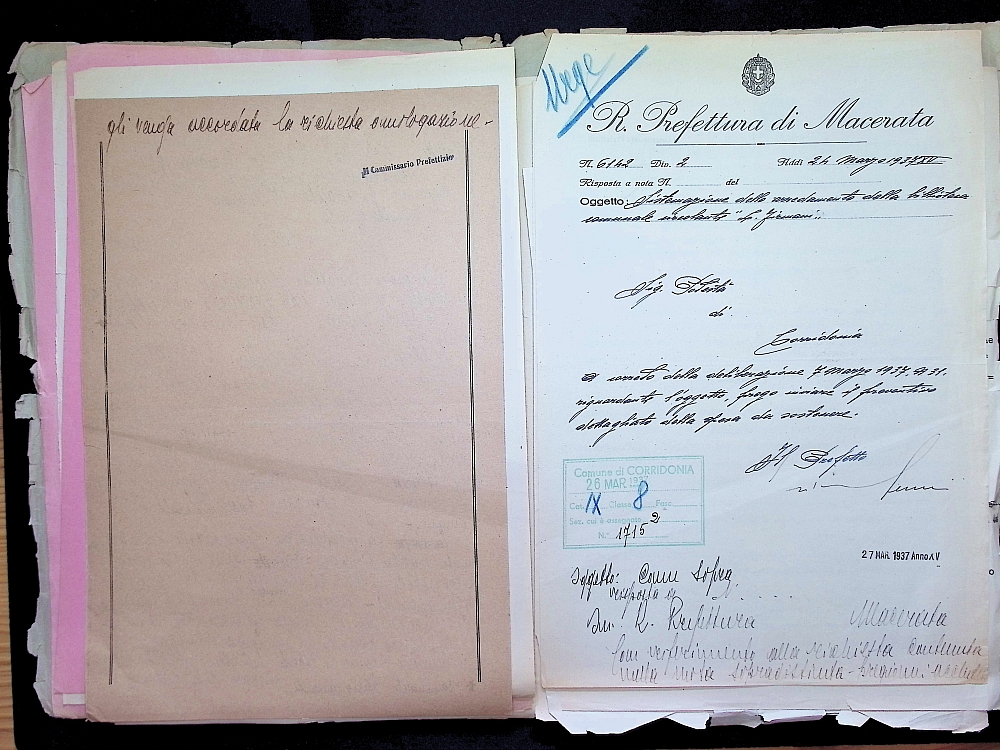 gli venga accordata la richiesta omologazione.-
Il Commissario Prefettizio
Urge
R. Prefettura di Macerata
N. 6142 Div. 2 Addì 24 Marzo 1937 XV
Risposta a nota N. del
Oggetto: Sistemazione dello arredamento della biblioteca
comunale circolante "
Sig. Podestà
di
Corridonia
A corredo della deliberazione 7 Marzo 1937, N. 31.
riguardante l'oggetto, prego inviare il preventivo
dettagliato della spesa da sostenere.
Il Prefetto
Comune di CORRIDONIA
26 MAR 1937
Cat. IX Classe 8 Fasc.
Sez. cui è assegnato 2
N.° 1715
27 MAR. 1937 Anno XV
Oggetto: Come sopra.
risposta a
R. Prefettura Macerata
Con riferimento alla richiesta contenuta
nella nota sopradistinta - pregiomi